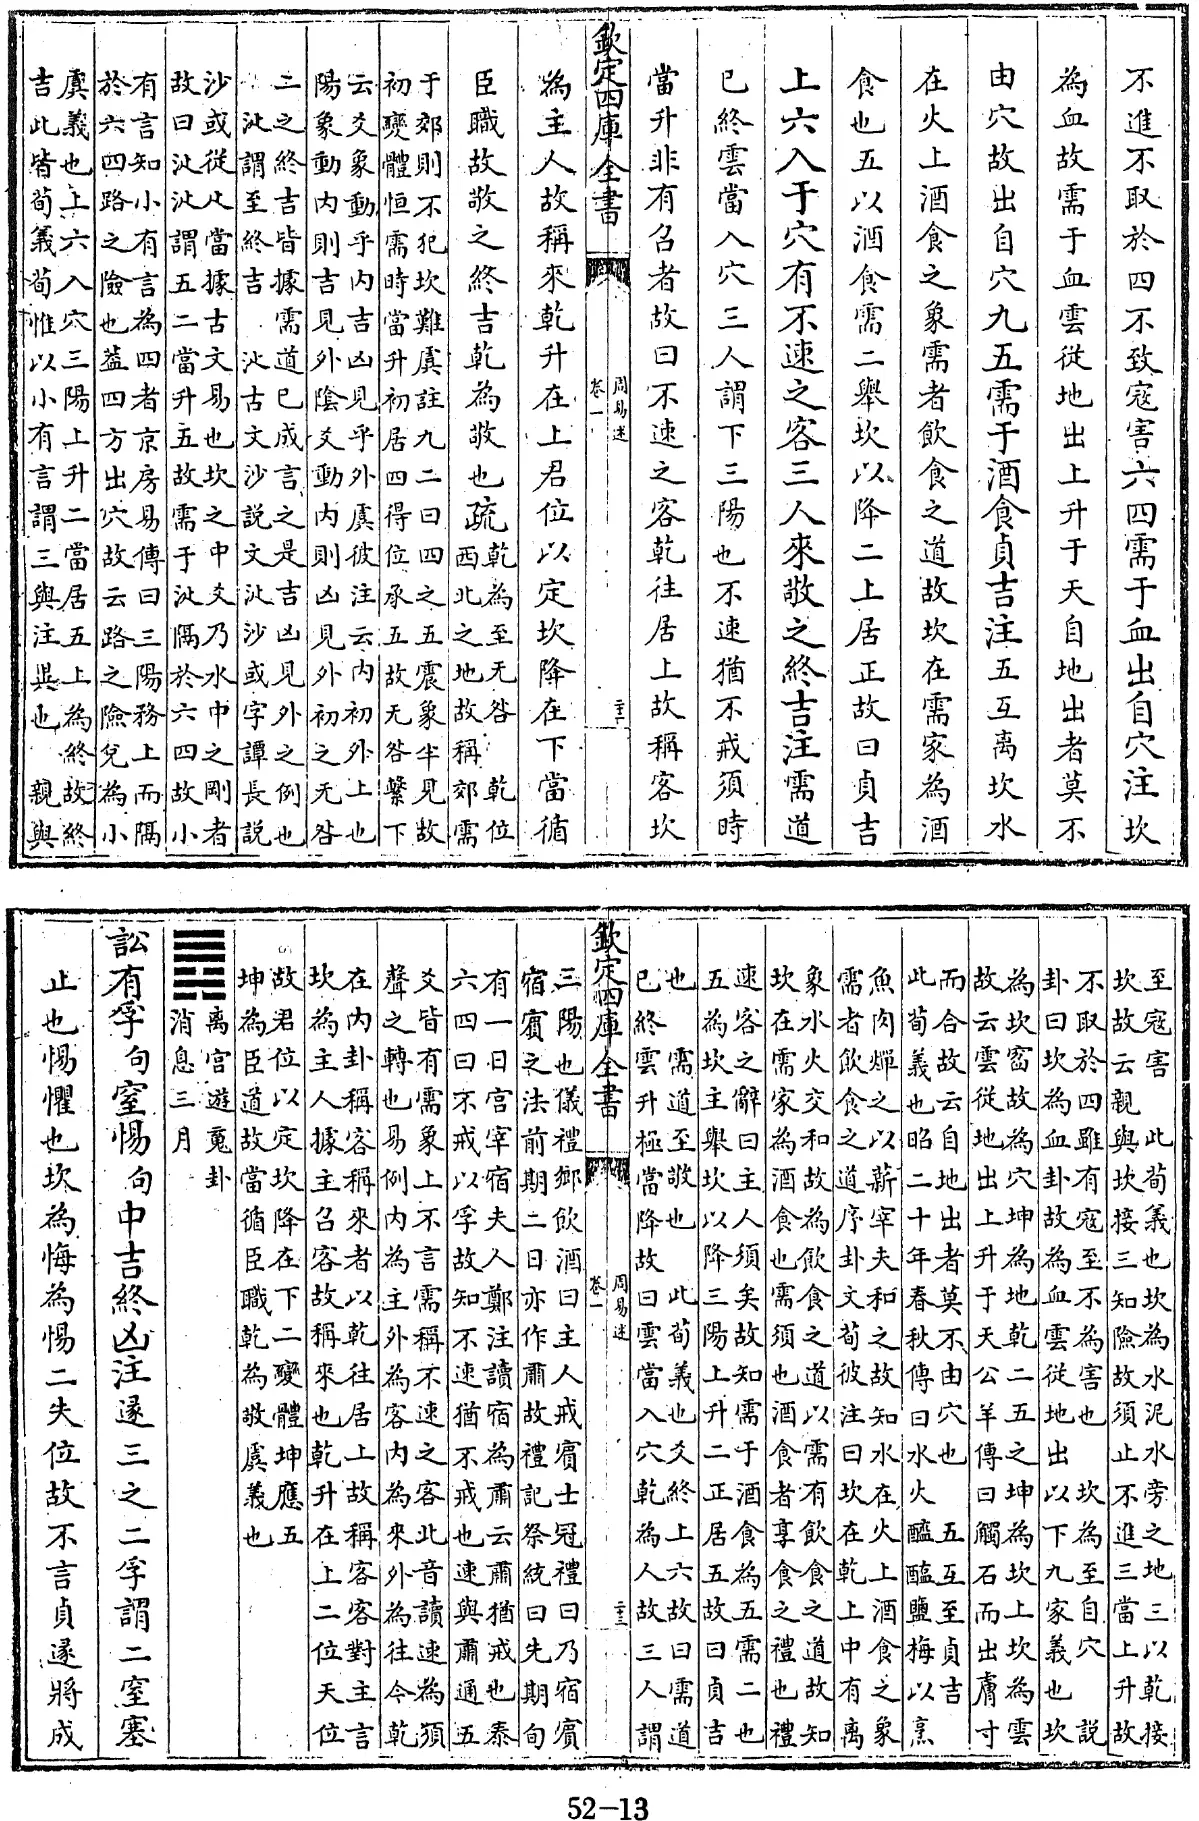 不進不取於四不致寇害六四需于血出自穴注坎
為血故需于血雲從地出上升于天自地出者莫不
由穴故出自穴九五需于酒食貞吉注五互離坎水
在火上酒食之象需者飲食之道故坎在需家為酒
食也五以酒食需二舉坎以降二上居正故曰貞吉
上六入于穴有不速之客三人來敬之終吉注需道
已終雲當入穴三人謂下三陽也不速猶不戒須時
當升非有召者故曰不速之客乾往居上故稱客坎
欽定四庫全書
周易述
卷一
二十二
為主人故稱來乾升在上君位以定坎降在下當循
臣職故敬之終吉乾為敬也疏
乾為至无咎 乾位
西北之地故稱郊需
于郊則不犯坎難虞註九二曰四之五震象半見故
初變體恒需時當升初居四得位承五故无咎繫下
云爻象動乎内吉凶見乎外虞彼注云内初外上也
陽象動内則吉見外陰爻動内則凶見外初之无咎
二之終吉皆據需道已成言之是吉凶見外之例也
沚謂至終吉 沚古文沙説文沚沙或字譚長説
沙或從止當據古文易也坎之中爻乃水中之剛者
故曰沚沚謂五二當升五故需于沚隔於六四故小
有言知小有言為四者京房易傳曰三陽務上而隔
於六四路之險也葢四方出穴故云路之險兌為小
虞義也上六入穴三陽上升二當居五上為終故終
吉此皆荀義荀惟以小有言謂三與注異也 親與
至寇害 此荀義也坎為水泥水旁之地三以乾接
坎故云親與坎接三知險故須止不進三當上升故
不取於四雖有寇至不為害也 坎為至自穴 説
卦曰坎為血卦故為血雲從地出以下九家義也坎
為坎窞故為穴坤為地乾二五之坤為坎上坎為雲
故云雲從地出上升于天公羊傳曰觸石而出膚寸
而合故云自地出者莫不由穴也 五互至貞吉
此荀義也昭二十年春秋傳曰水火醯醢鹽梅以烹
魚肉燀之以薪宰夫和之故知水在火上酒食之象
需者飲食之道序卦文荀彼注曰坎在乾上中有離
象水火交和故為飲食之道以需有飲食之道故知
坎在需家為酒食也需須也酒食者享食之禮也禮
速客之辭曰主人須矣故知需于酒食為五需二也
五為坎主舉坎以降三陽上升二正居五故曰貞吉
也 需道至敬也 此荀義也爻終上六故曰需道
已終雲升極當降故曰雲當入穴乾為人故三人謂
欽定四庫全書
周易述
卷一
二十三
三陽也儀禮鄉飲酒曰主人戒賓士冠禮曰乃宿賓
宿賓之法前期二日亦作肅故禮記祭統曰先期旬
有一日宮宰宿夫人鄭注讀宿為肅云肅猶戒也泰
六四曰不戒以孚故知不速猶不戒也速與肅通五
爻皆有需象上不言需稱不速之客此音讀速為須
聲之轉也易例内為主外為客内為來外為往今乾
在内卦稱客稱來者以乾往居上故稱客客對主言
坎為主人據主召客故稱來也乾升在上二位天位
故君位以定坎降在下二變體坤應五
坤為臣道故當循臣職乾為敬虞義也
離宮遊䰟卦
消息三月
訟有孚句窒惕句中吉終凶注遂三之二孚謂二窒塞
止也惕懼也坎為悔為惕二失位故不言貞遂將成
52-13